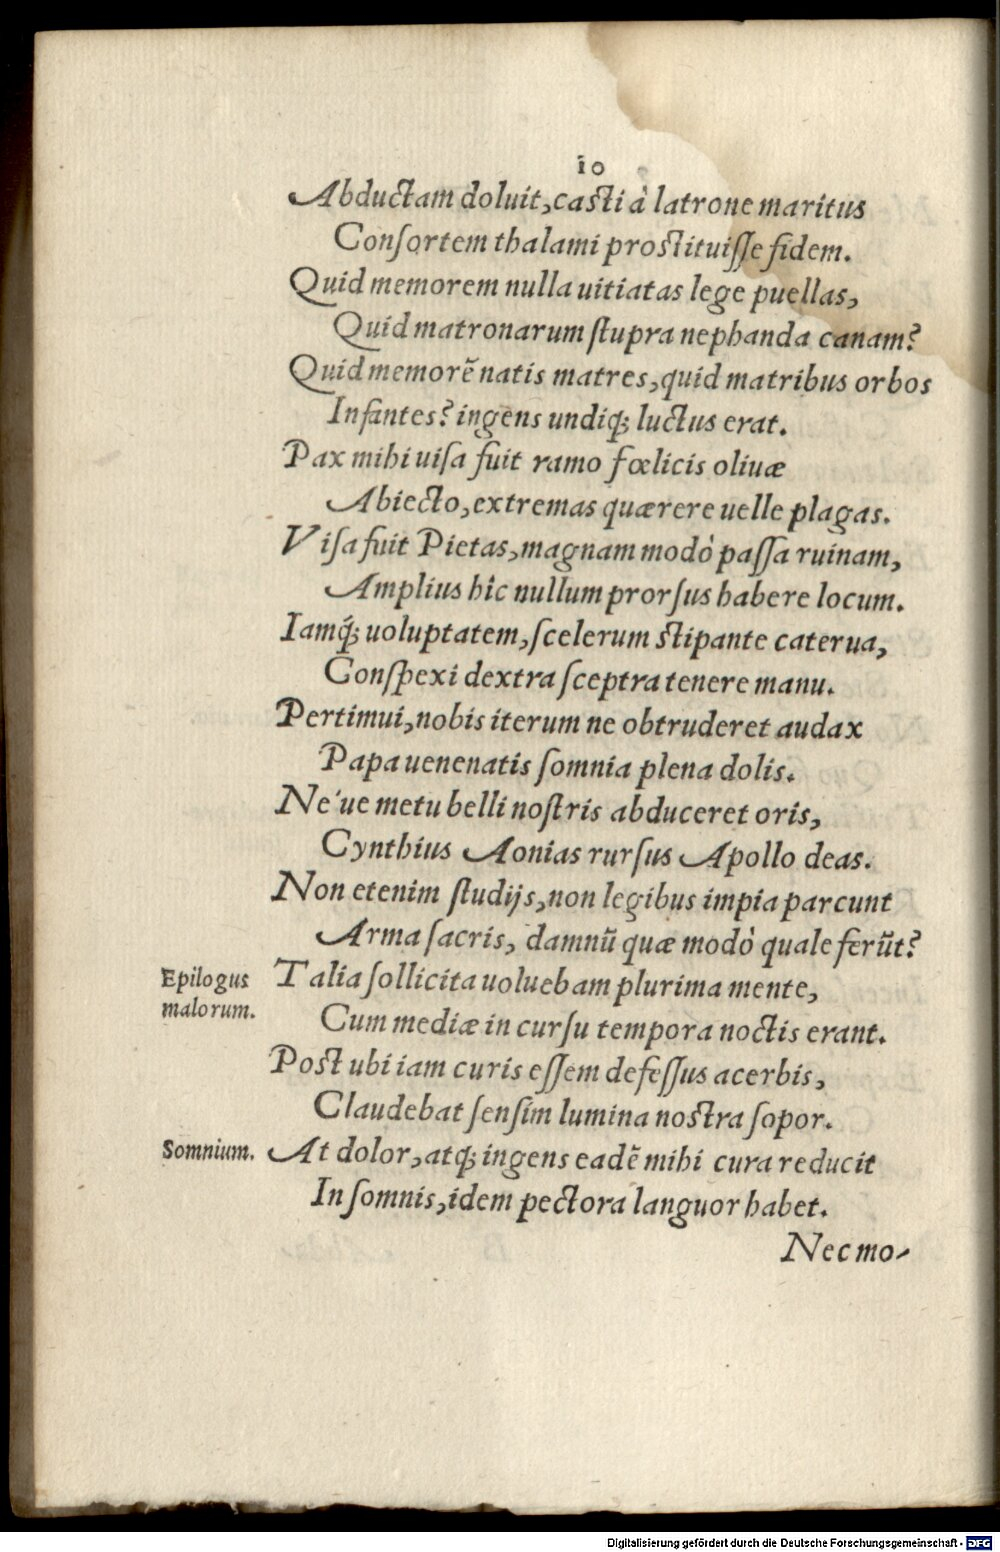 10
Abductam doluit, casti à latrone maritus
Conſortem thalami proſtituiſſe fidem.
Quid memorem nulla uitiatas lege puellas,
Quid matronarum ſtupra nephanda canam?
Quid memorẽ natis matres, quid matribus orbos
Infantes? ingens undiq; luctus erat.
Pax mihi uiſa fuit ramo fœlicis oliuæ
Abiecto, extremas quærere uelle plagas.
Viſa fuit Pietas, magnam modò paſſa ruinam,
Amplius hîc nullum prorſus habere locum.
Iamq́; uoluptatem, ſcelerum ſtipante caterua,
Conſpexi dextra ſceptra tenere manu.
Pertimui, nobis iterum ne obtruderet audax
Papa uenenatis ſomnia plena dolis.
Ne'ue metu belli noſtris abduceret oris,
Cynthius Aonias rurſus Apollo deas.
Non etenim ſtudijs, non legibus impia parcunt
Arma ſacris, damnũ quæ modò quale ferũt?
Epilogus malorum.
Talia ſollicita uoluebam plurima mente,
Cum mediæ in curſu tempora noctis erant.
Poſt ubi iam curis eſſem defeſſus acerbis,
Claudebat ſenſim lumina noſtra ſopor.
Somnium.
At dolor, atq; ingens eadẽ mihi cura reducit
In ſomnis, idem pectora languor habet.
Nec mo-
Digitalisierung gefördert durch die Deutsche Forschungsgemeinschaft - DFG